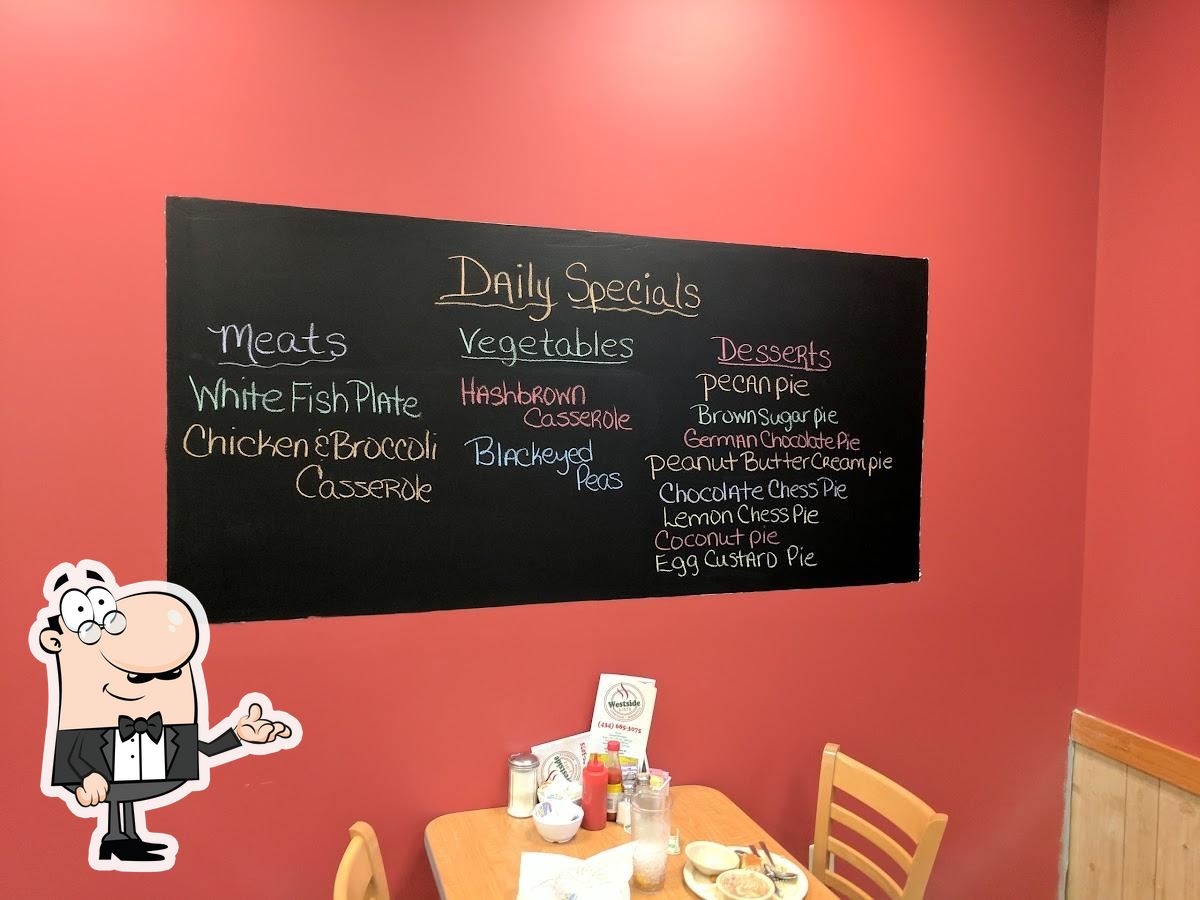 Daily Specials
Meats
White Fish Plate
Chicken & Broccoli
Casserole
Vegetables
Hashbrown
Casserole
Blackeyed
Peas
Desserts
Pecan pie
Brown Sugar pie
German Chocolate Pie
Peanut Butter Cream pie
Chocolate Chess Pie
Lemon Chess Pie
Coconut pie
Egg Custard Pie
Westside
(434) 685-3075
Westside